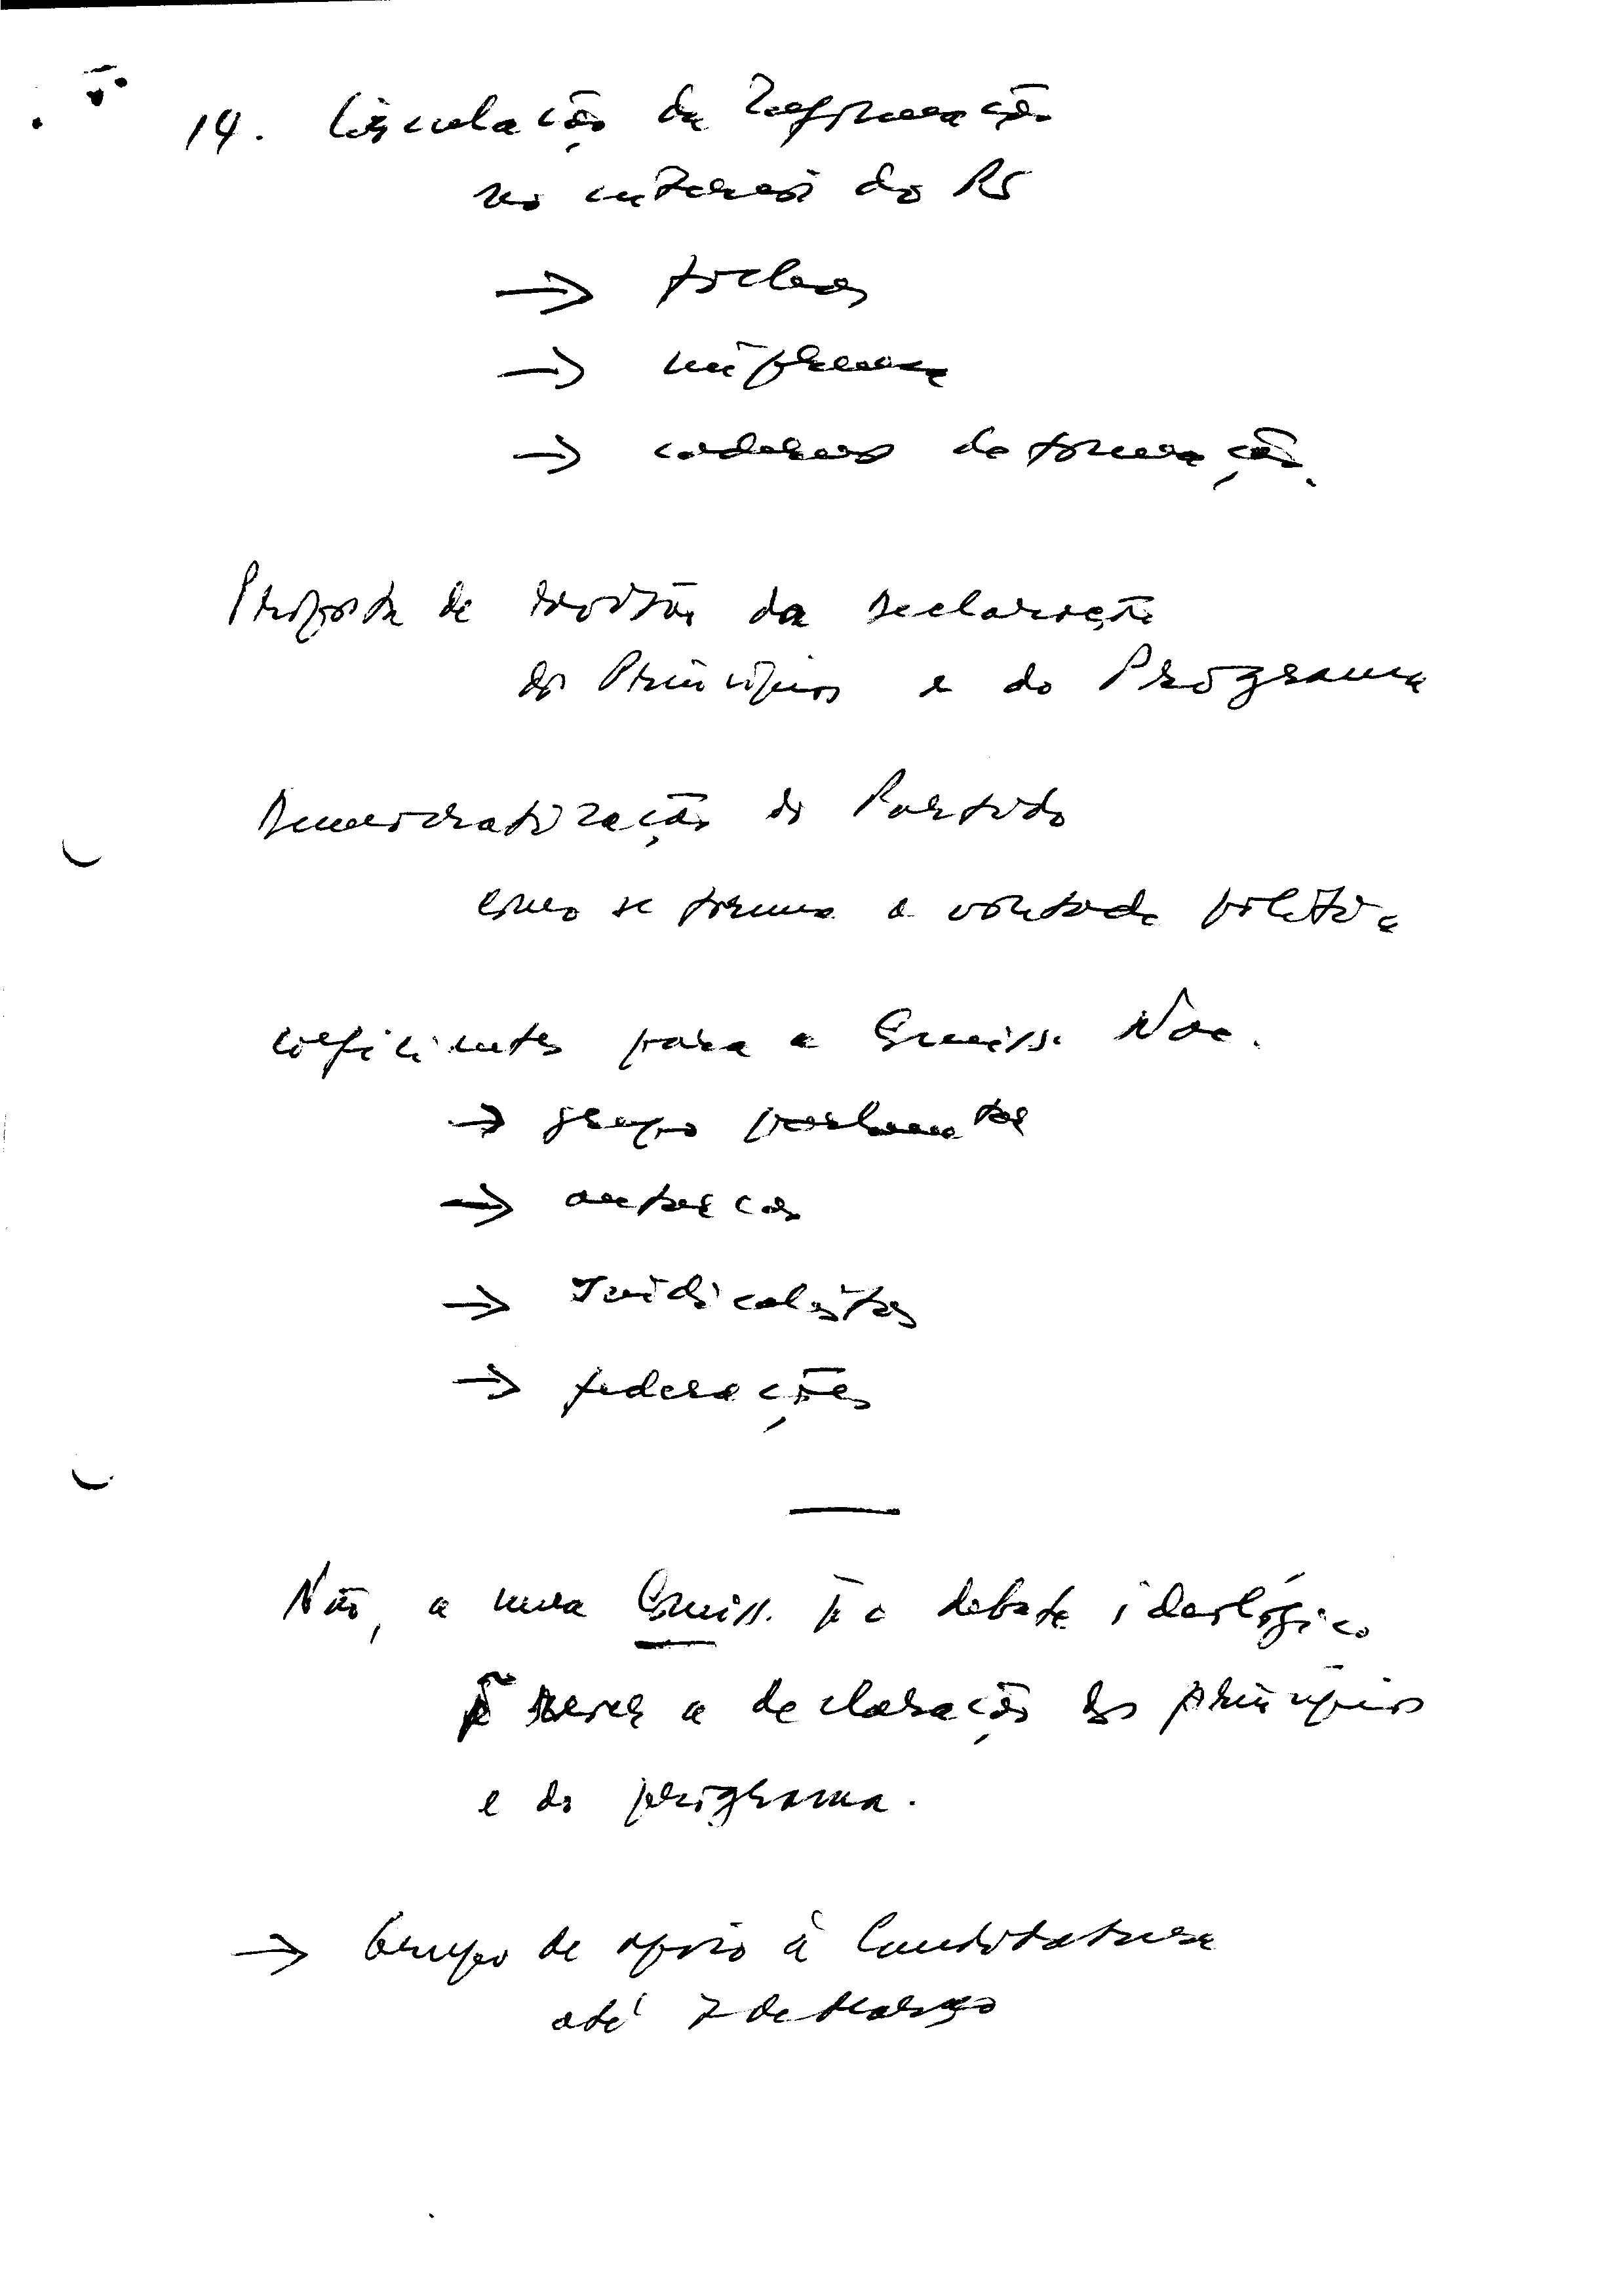 14. Circulação da Informação
no interior do PS
→ folhas
→ imprensa
→ cadernos de formação.
Proposta de revisão da Declaração
dos Princípios e do Programa
Democratização do Partido
como se forma a vontade política
coeficientes para a Comiss. Nac.
→ grupo parlamentar
→ autarcas
→ Sindicalistas
→ federações
Não, a uma Comiss. p.ª o debate ideológico
e rever a declaração dos princípios
e do programa.
→ Grupo de apoio à Candidatura
até 7 de Março